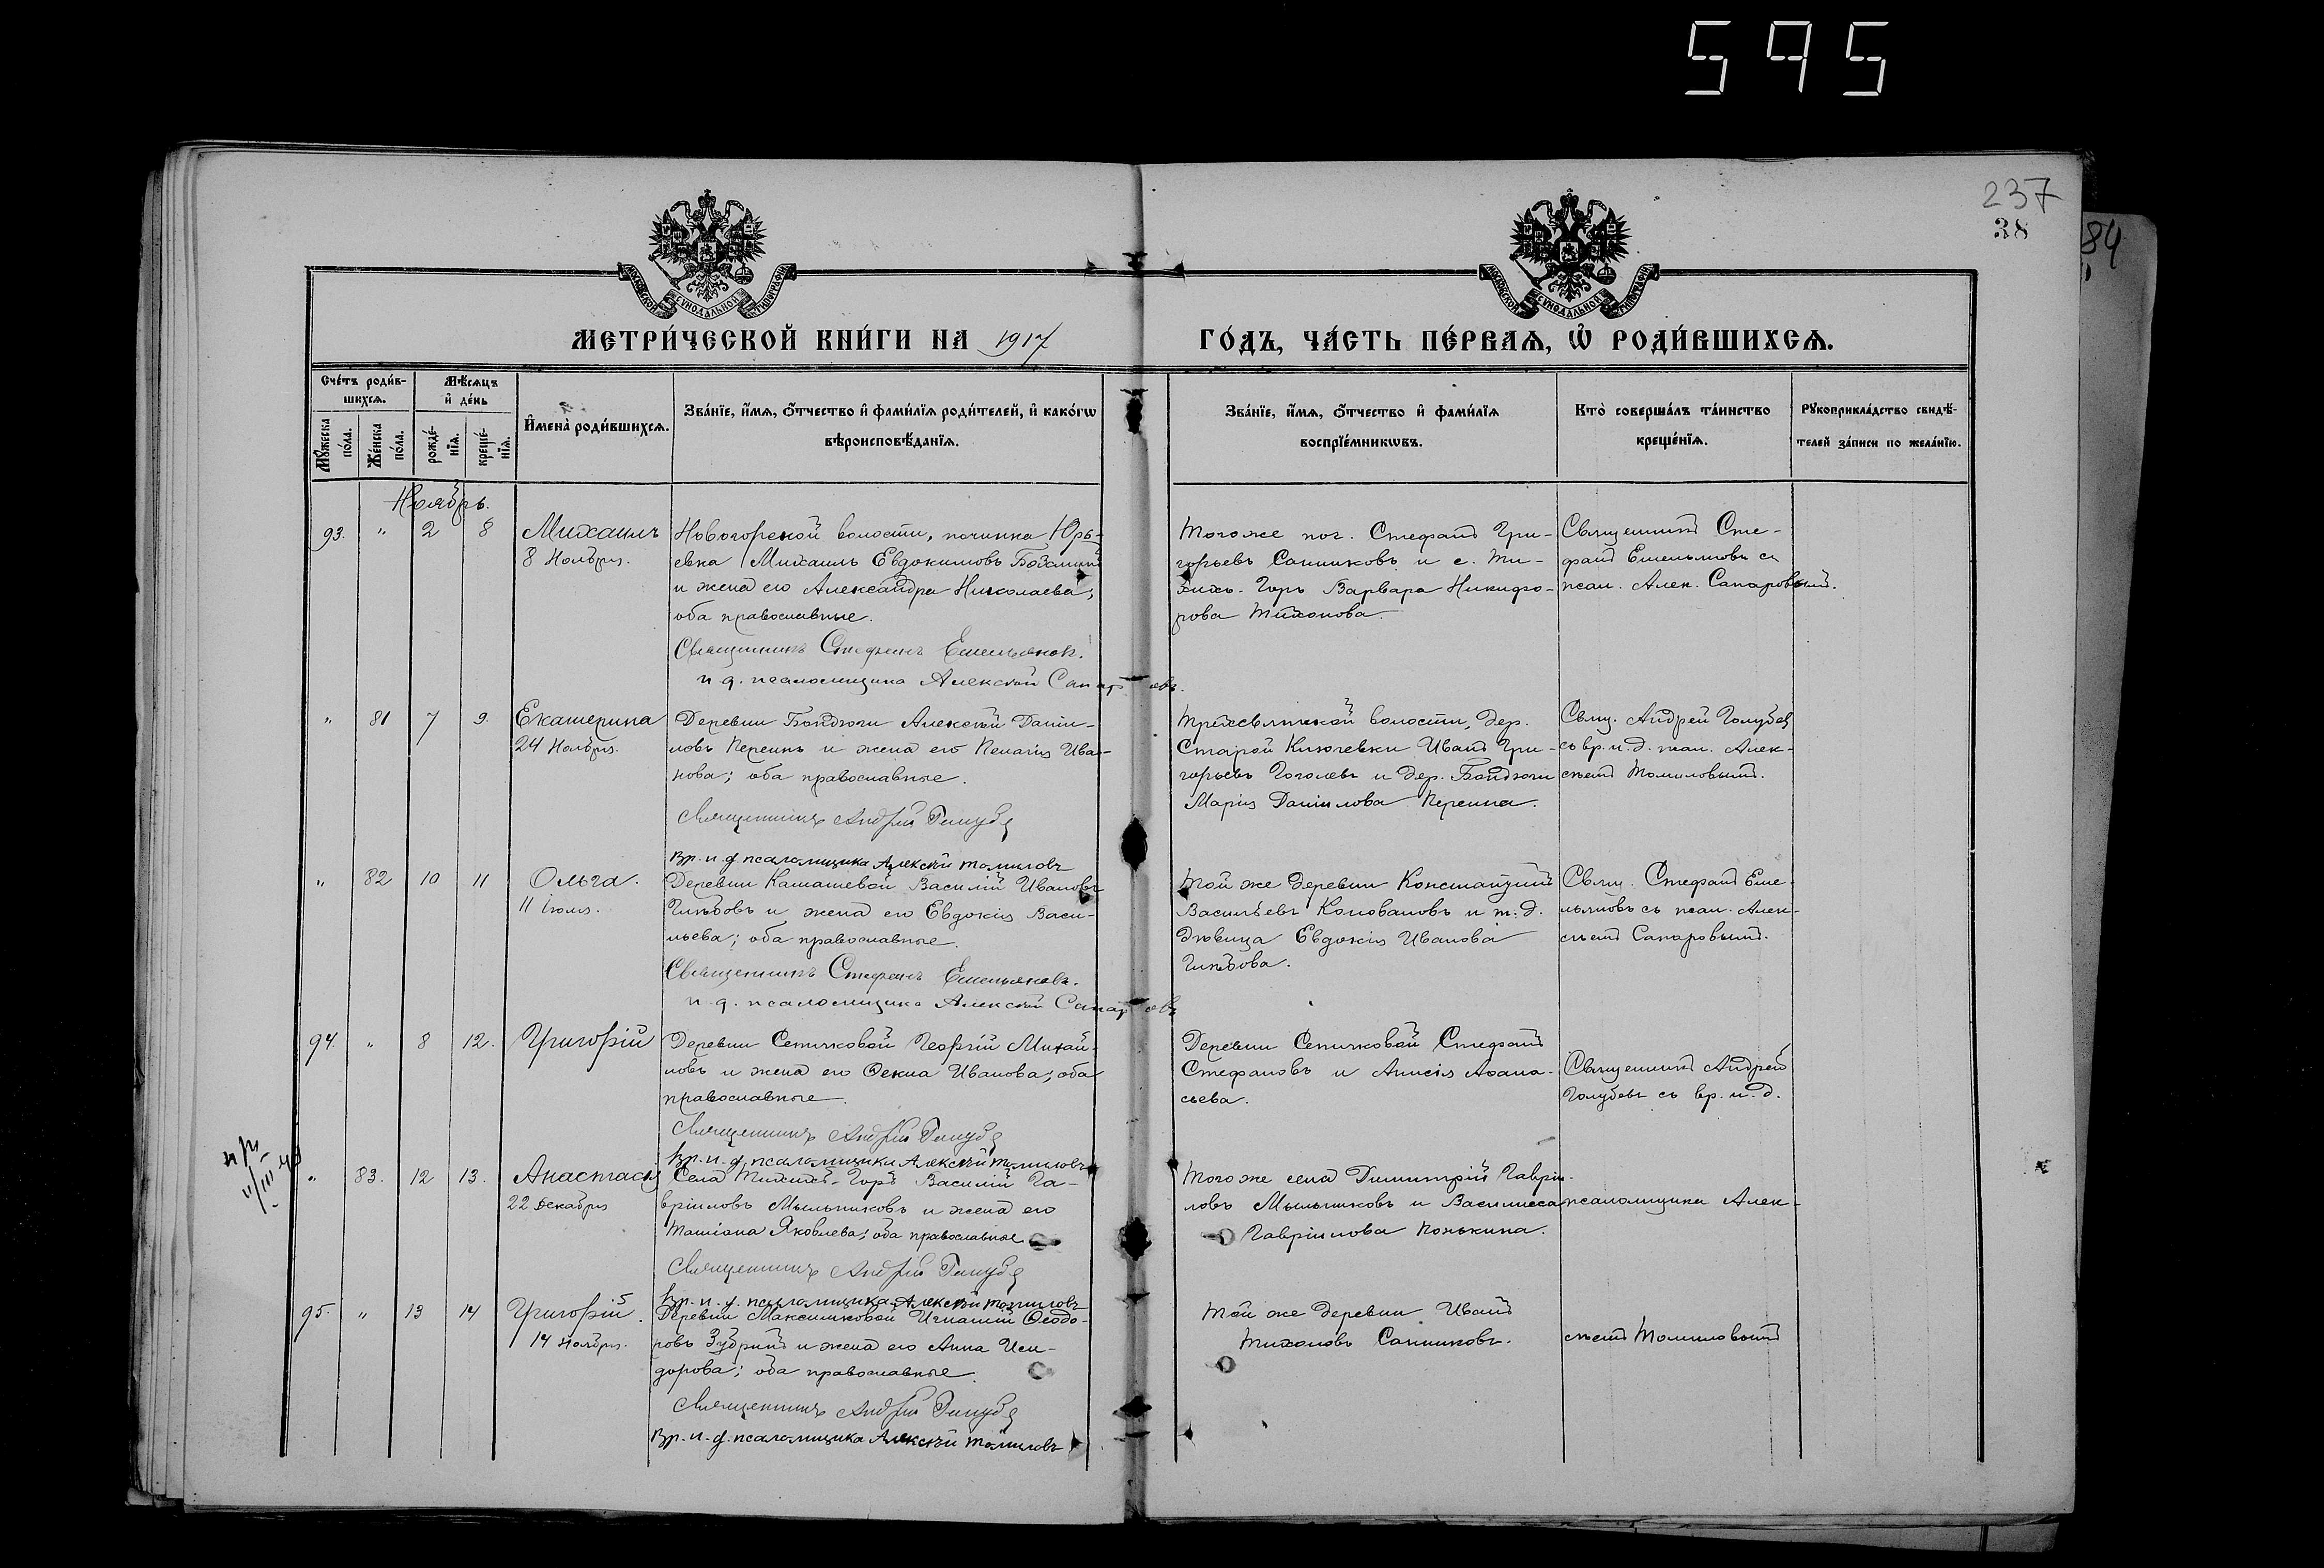 595
237
38
84
МОСКОВСКОЙ СѴНОДАЛЬНОЙ ТИПОГРАФІИ
МОСКОВСКОЙ СѴНОДАЛЬНОЙ ТИПОГРАФІИ
МЕТРИ́ЧЕСКОЙ КНИ́ГИ НА 1917
ГО́ДЪ, ЧА́СТЬ ПЕ́РВАѦ, Ѡ҆ РОДИ́ВШИХСѦ.
Сче́тъ роди́в-
шихсѧ.
Мꙋ́жеска по́ла.
Же́нска по́ла.
Мѣ́сѧцъ
и҆ де́нь
рожде́-нїѧ.
креще́-нїѧ.
И҆мена̀ роди́вшихсѧ.
Зва́нїе, и҆́мѧ, ѻ҆́тчество и҆ фами́лїѧ роди́телей, и҆ како́гѡ
вѣроисповѣ́данїѧ.
Зва́нїе, и҆́мѧ, ѻ҆́тчество и҆ фами́лїѧ
воспрїе́мникѡвъ.
Кто̀ соверша́лъ та́инство
креще́нїѧ.
Рꙋкоприкла́дство свидѣ́-
телей за́писи по жела́нїю.
Ноябрь.
93. " 2 8
Михаилъ
8 Ноября.
Новогорской волости, починка Юрь-
евка Михаилъ Евдокимовъ
и жена его Александра Николаева,
оба православные.
Священникъ Стефанъ Емельяновъ.
и. д. псаломщика Алексѣй Сапаровъ.
Того же поч. Стефанъ Гри-
горьевъ Санниковъ и с. Ти-
хихъ-Горъ Варвара Никифо-
рова Тихонова.
Священникъ Сте-
фанъ Емельяновъ съ
псал. Алек. Сапаровымъ.
" 81 7 9.
Екатерина
24 Ноября.
Деревни Бондюги Алексѣй Дани-
ловъ Перешъ и жена его Пелагія Ива-
нова; оба православные.
Священникъ Андрей Голубевъ
Вр. и. д. псаломщика Алексѣй Томиловъ
Трехсвятской волости, дер.
Старой Ключевки Иванъ Гри-
горьевъ Гоголевъ и дер. Бондюги
Марія Данилова
Свящ. Андрей Голубевъ
съ вр. и. д. псал. Алек-
сѣемъ Томиловымъ.
" 82 10 11
Ольга.
11 Іюля.
Деревни Камашевой Василій Ивановъ
Глѣбовъ и жена его Евдокія Васи-
льева; оба православные.
Священникъ Стефанъ Емельяновъ.
и. д. псаломщика Алексѣй Сапаровъ
Той же деревни Константинъ
Васильевъ Коноваловъ и т. д.
дѣвица Евдокія Иванова
Глѣбова.
Свящ. Стефанъ Еме-
льяновъ съ псал. Алек-
сѣемъ Сапаровымъ.
94. " 8 12.
Григорій
Деревни Сетяковой Георгій Михай-
ловъ и жена его Ѳекла Иванова; оба
православные.
Священникъ Андрей Голубевъ
Вр. и. д. псаломщика Алексѣй Томиловъ
Деревни Сетяковой Стефанъ
Стефановъ и Анисія Аѳана-
сьева.
Священникъ Андрей
Голубевъ съ вр. и. д.
" 83. 12 13.
Анастасія
22 Декабря
Села Тихихъ-Горъ Василій Га-
вріиловъ Мыльниковъ и жена его
Татіана Яковлева; оба православные
Священникъ Андрей Голубевъ
Вр. и. д. псаломщика Алексѣй Томиловъ
Того же села Димитрій Гаврі-
ловъ Мыльниковъ и Василисса
Гавріилова Понькина.
псаломщика Алек-
95. " 13 14
Григорій.
14 Ноября.
Деревни Максимковой Игнатій Ѳеодо-
ровъ Зубринъ и жена его Анна Иси-
дорова; оба православные.
Священникъ Андрей Голубевъ
Вр. и. д. псаломщика Алексѣй Томиловъ
Той же деревни Иванъ
Тихоновъ Санниковъ.
сѣемъ Томиловымъ